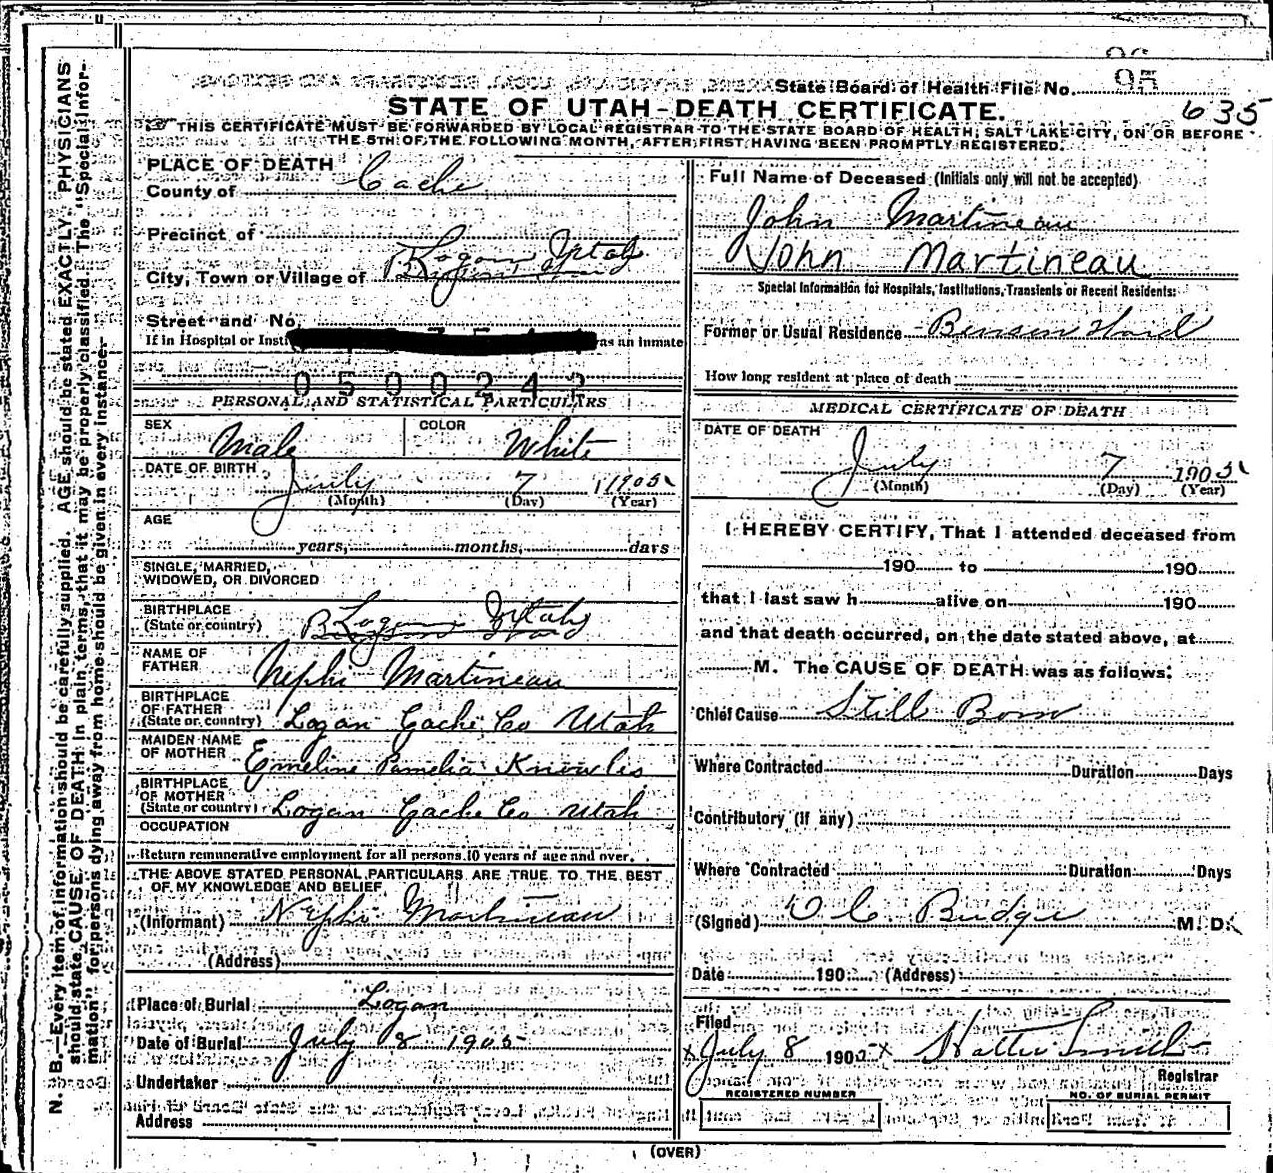 95
State Board of Health File No.
635
STATE OF UTAH-DEATH CERTIFICATE.
THIS CERTIFICATE MUST BE FORWARDED BY LOCAL REGISTRAR TO THE STATE BOARD OF HEALTH, SALT LAKE CITY, ON OR BEFORE
THE 5TH OF THE FOLLOWING MONTH, AFTER FIRST HAVING BEEN PROMPTLY REGISTERED.
N. B.—Every item of information should be carefully supplied. AGE should be stated EXACTLY. PHYSICIANS
should state CAUSE OF DEATH in plain terms, that it may be properly classified. The "Special Infor-
mation" for persons dying away from home should be given in every instance.
PLACE OF DEATH
County of Cache
Precinct of
City, Town or Village of Logan Utah
Street and No.
If in Hospital or Insti as an inmate
0500242
PERSONAL AND STATISTICAL PARTICULARS
SEX Male COLOR White
DATE OF BIRTH July 7 1905
(Month) (Day) (Year)
AGE
years, months, days
SINGLE, MARRIED,
WIDOWED, OR DIVORCED
BIRTHPLACE
(State or country) Logan Utah
NAME OF
FATHER Nephi Martineau
BIRTHPLACE
OF FATHER
(State or country) Logan Cache Co Utah
MAIDEN NAME
OF MOTHER Emeline Pamelia Knowles
BIRTHPLACE
OF MOTHER
(State or country) Logan Cache Co Utah
OCCUPATION
Return remunerative employment for all persons 10 years of age and over.
THE ABOVE STATED PERSONAL PARTICULARS ARE TRUE TO THE BEST
OF MY KNOWLEDGE AND BELIEF
(Informant) Nephi Martineau
(Address)
Place of Burial Logan
Date of Burial July 8 1905
Undertaker
Address
Full Name of Deceased (Initials only will not be accepted)
John Martineau
John Martineau
Special Information for Hospitals, Institutions, Transients or Recent Residents:
Former or Usual Residence Benson Ward
How long resident at place of death
MEDICAL CERTIFICATE OF DEATH
DATE OF DEATH
July 7 1905
(Month) (Day) (Year)
I HEREBY CERTIFY, That I attended deceased from
190 to 190
that I last saw h alive on 190
and that death occurred, on the date stated above, at
M. The CAUSE OF DEATH was as follows:
Chief Cause Still Born
Where Contracted Duration Days
Contributory (if any)
Where Contracted Duration Days
(Signed) Budge M. D.
Date 190 (Address)
Filed
July 8 1905 Smith
Registrar
REGISTERED NUMBER NO. OF BURIAL PERMIT
(OVER)